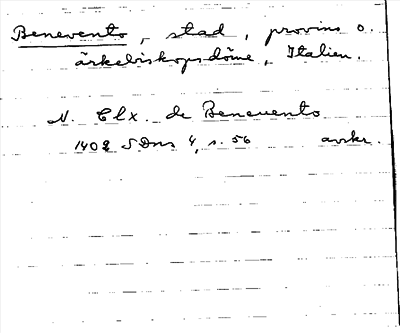 Benevento, stad, provins o.
ärkebiskopsdöme, Italien.
N. Elx. de Beneuento
1402 SDns 4, s. 56 avskr.